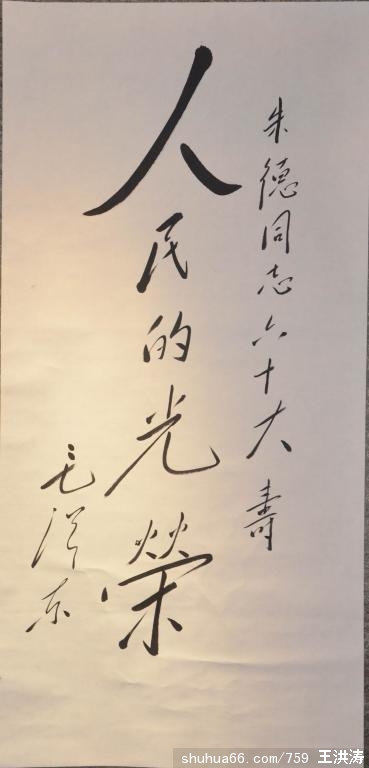 朱德同志六十大壽
人民的光榮
毛澤东
shuhua66.com/759 王洪涛